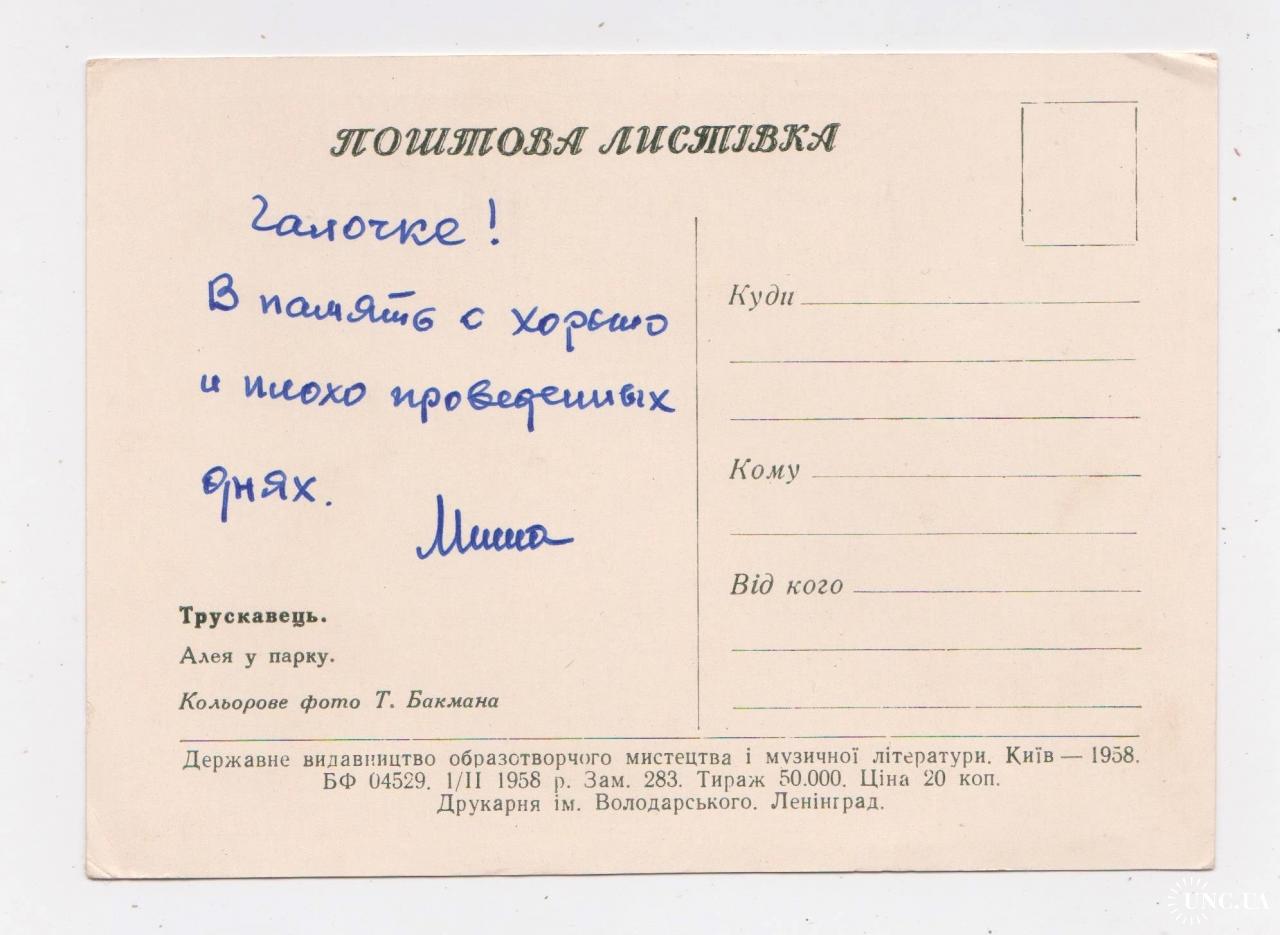 ПОШТОВА ЛИСТІВКА
Галочке!
В память о хорошо
и плохо проведенных
днях.
Миша
Куди
Кому
Від кого
Трускавець.
Алея у парку.
Кольорове фото Т. Бакмана
Державне видавництво образотворчого мистецтва і музичної літератури. Київ — 1958.
БФ 04529. 1/II 1958 р. Зам. 283. Тираж 50.000. Ціна 20 коп.
Друкарня ім. Володарського. Ленінград.
UNC.UA